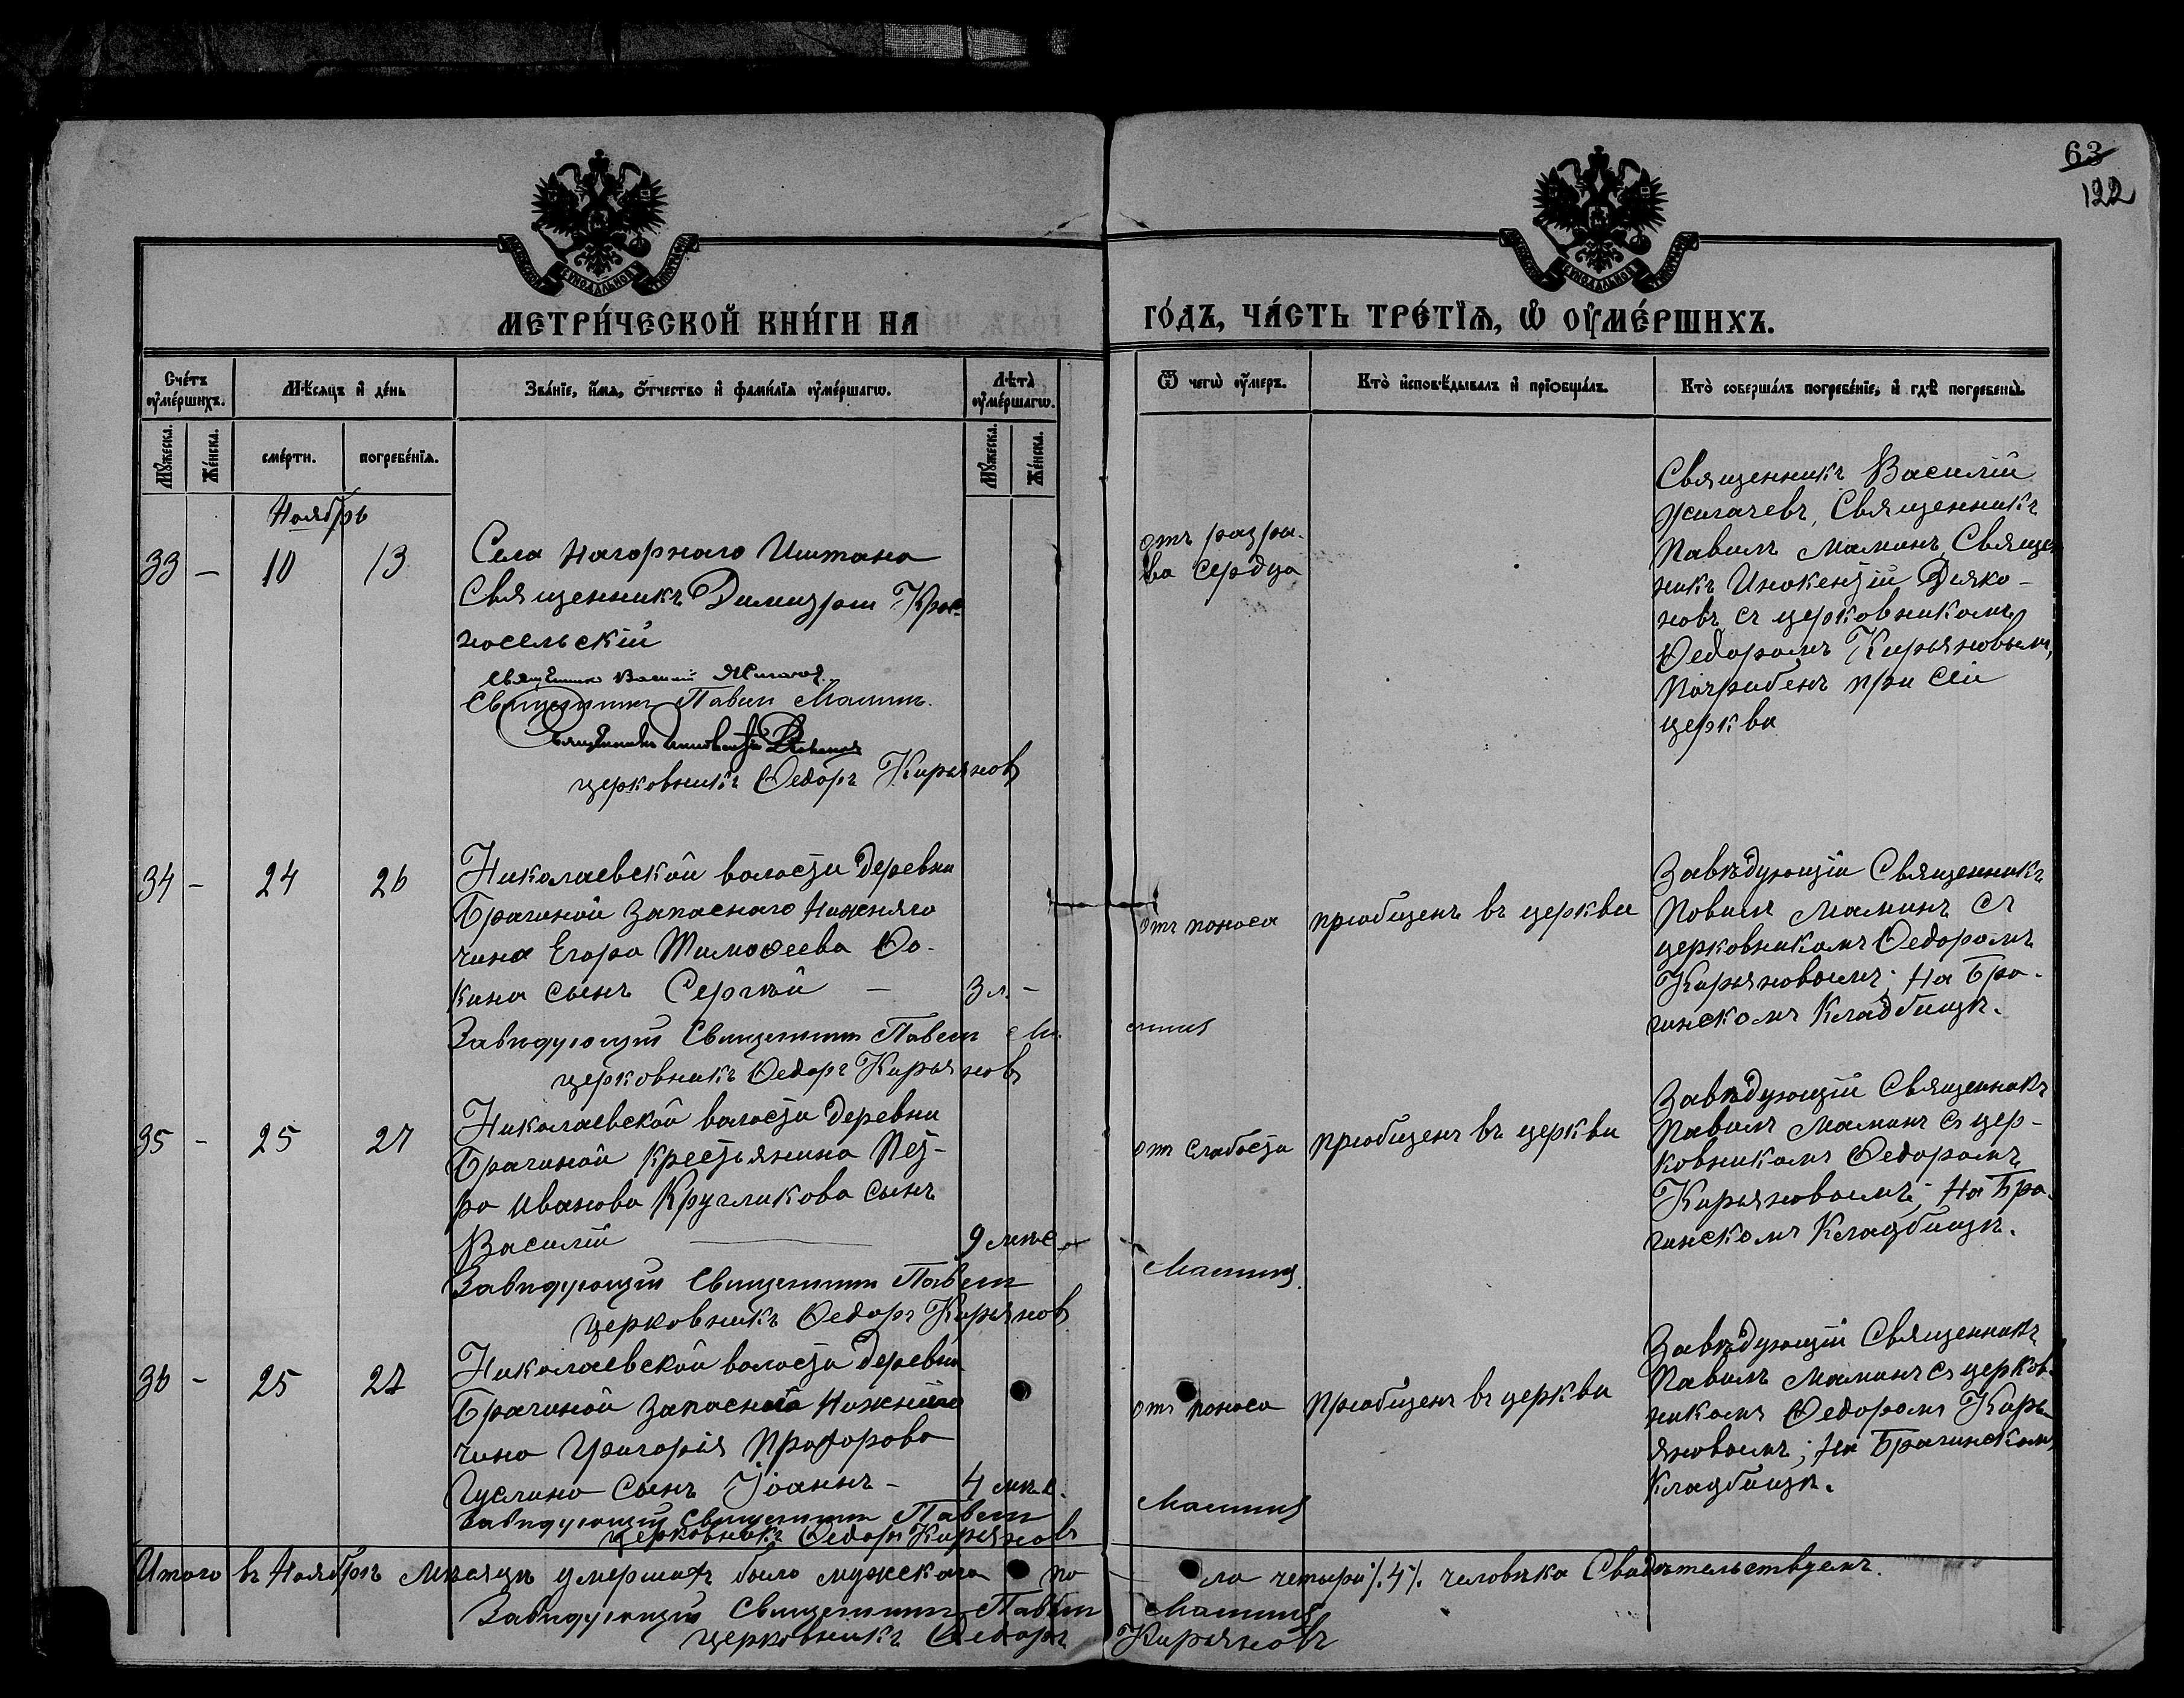 63
122
МЕТРИ́ЧЕСКОЙ КНИ́ГИ НА
ГО́ДЪ, ЧА́СТЬ ТРЕ́ТЇѦ, Ѡ ОУМЕ́РШИХЪ.
Сче́тъ оуме́ршихъ.
Мѣ́сяцъ и де́нь
Зва́нїе, и́мѧ, о́тчество и фами́лїѧ оуме́ршагѡ.
Лѣта̀ оуме́ршагѡ.
Ѿ чегѡ̀ оу́меръ.
Кто̀ исповѣ́дывалъ и прїобща́лъ.
Кто̀ соверша́лъ погребе́нїе, и гдѣ̀ погребены̀.
Мꙋ́жеска.
Же́нска.
сме́рти.
погребе́нїѧ.
Мꙋ́жеска.
Же́нска.
Ноябрь
33 – 10 13
Села Нагорнаго Иштана
Священникъ Димитрій Крас
носельскій
Священникъ Василій Жигачевъ
Священникъ Павелъ Маминъ.
Священникъ Инокентій
церковникъ Ѳедоръ Кирьяновъ
отъ разры-
ва сердца
Священникъ Василій
Жигачевъ, Священникъ
Павелъ Маминъ, Священ
никъ Инокентій Дьяко-
новъ съ церковникомъ
Ѳедоромъ Кирьяновымъ,
Погребенъ при сей
церкви
34 – 24 26
Николаевской волости деревни
Брагиной запаснаго Нижняго
чина Егора Тимофеева Фо-
кина сынъ Сергѣй – 3 л. –
Завѣдующій Священникъ Павелъ Маминъ
церковникъ Ѳедоръ Кирьяновъ
отъ поноса
прiобщенъ въ церкви
Завѣдующій Священникъ
Павелъ Маминъ съ
церковникомъ Ѳедоромъ
Кирьяновымъ; На Бра-
гинскомъ Кладбищѣ.
35 – 25 27
Николаевской волости деревни
Брагиной крестьянина Пет-
ра Иванова Кругликова сынъ
Василій – 9 мѣс
Завѣдующій Священникъ Павелъ Маминъ
церковникъ Ѳедоръ Кирьяновъ
отъ слабости
прiобщенъ въ церкви
Завѣдующій Священникъ
Павелъ Маминъ съ цер-
ковникомъ Ѳедоромъ
Кирьяновымъ; На Бра-
гинскомъ Кладбищѣ.
36 – 25 27
Николаевской волости деревни
Брагиной запаснаго Нижняго
чина Григорія Прохорова
сынъ Іоаннъ – 4 мѣс.
Завѣдующій Священникъ Павелъ Маминъ
церковникъ Ѳедоръ Кирьяновъ
отъ поноса
прiобщенъ въ церкви
Завѣдующій Священникъ
Павелъ Маминъ съ церков
никомъ Ѳедоромъ Кирь
яновымъ; На Брагинскомъ
Кладбищѣ.
Итого въ Ноябрѣ мѣсяцѣ умершихъ было мужскаго по ла четыри /.4/. человѣка Свидѣтельствуемъ.
Завѣдующій Священникъ Павелъ Маминъ
церковникъ Ѳедоръ Кирьяновъ